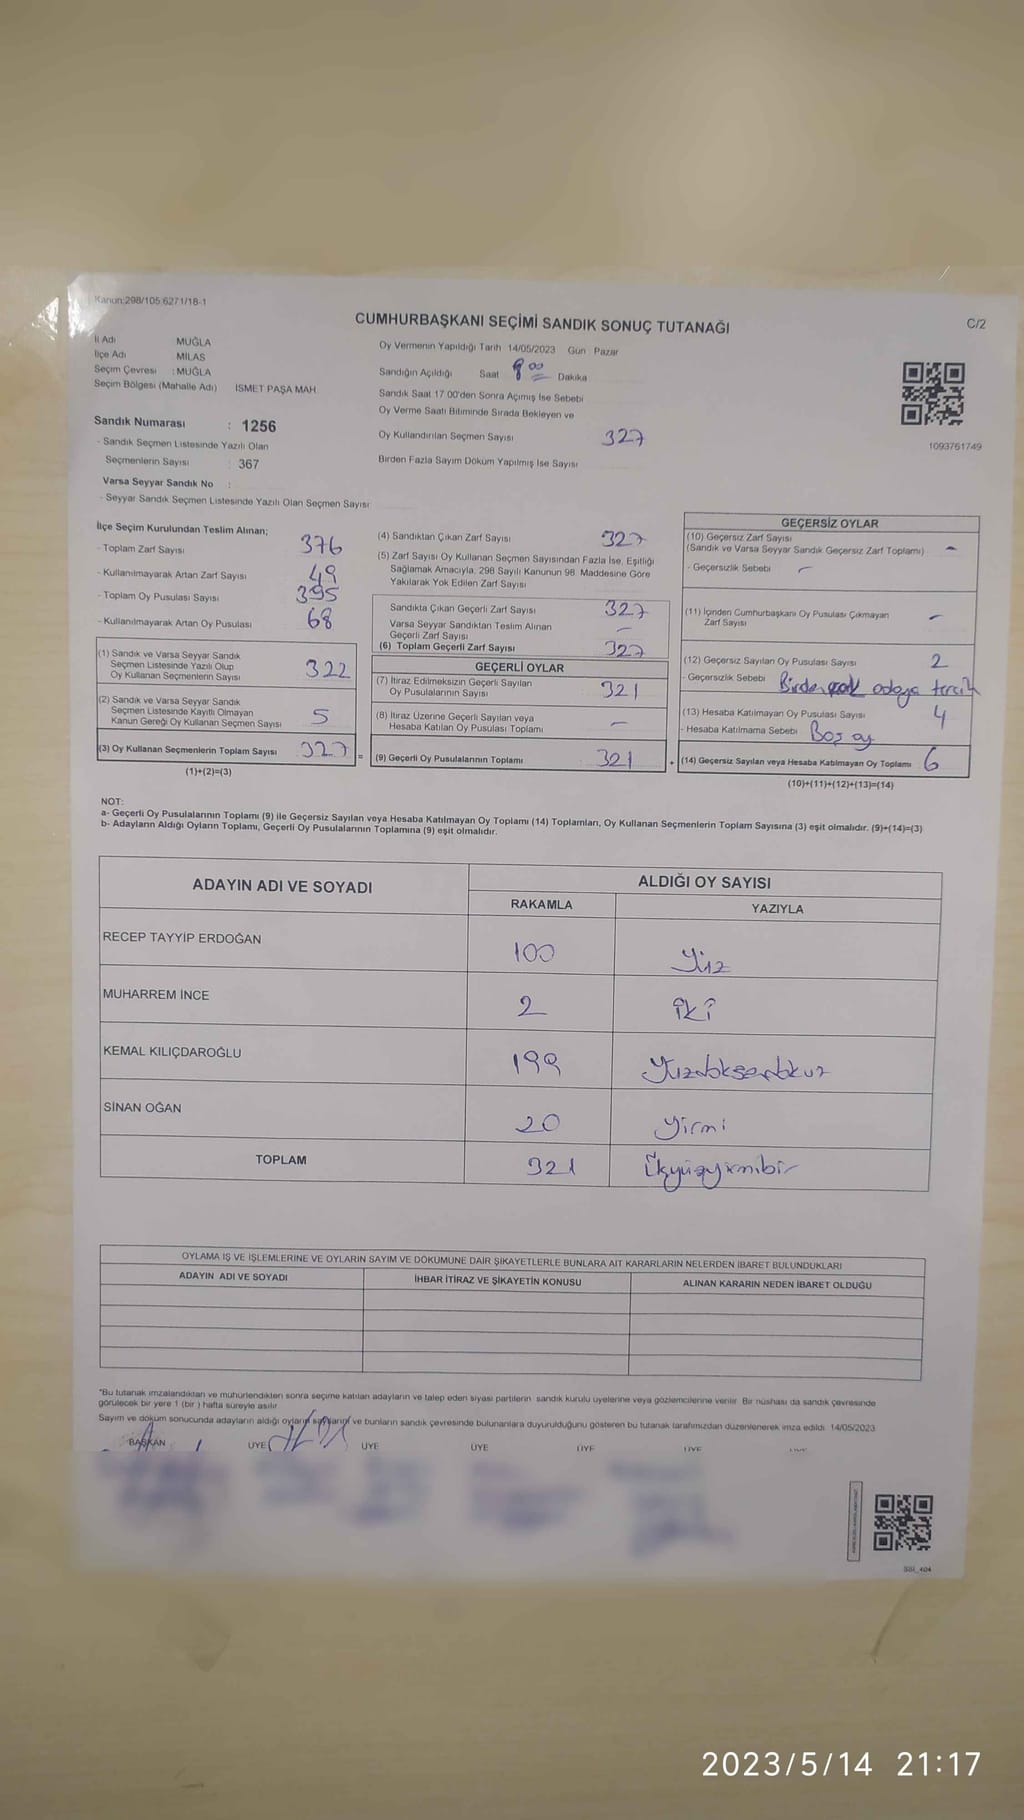 Kanun:298/105 6271/18-1
CUMHURBAŞKANI SEÇİMİ SANDIK SONUÇ TUTANAĞI
C/2
İl Adı MUĞLA
İlçe Adı MİLAS
Seçim Çevresi : MUĞLA
Seçim Bölgesi (Mahalle Adı) İSMET PAŞA MAH.
Oy Vermenin Yapıldığı Tarih 14/05/2023 Gün Pazar
Sandığın Açıldığı Saat 8 00 Dakika
Sandık Saat 17 00'den Sonra Açımış İse Sebebi
Oy Verme Saati Bitiminde Sırada Bekleyen ve
Oy Kullandırılan Seçmen Sayısı 327
Birden Fazla Sayım Döküm Yapılmış İse Sayısı
1093761749
Sandık Numarası : 1256
- Sandık Seçmen Listesinde Yazılı Olan
Seçmenlerin Sayısı : 367
Varsa Seyyar Sandık No :
- Seyyar Sandık Seçmen Listesinde Yazılı Olan Seçmen Sayısı
İlçe Seçim Kurulundan Teslim Alınan;
- Toplam Zarf Sayısı 376
- Kullanılmayarak Artan Zarf Sayısı 49
- Toplam Oy Pusulası Sayısı 395
- Kullanılmayarak Artan Oy Pusulası 68
(1) Sandık ve Varsa Seyyar Sandık
Seçmen Listesinde Yazılı Olup
Oy Kullanan Seçmenlerin Sayısı 322
(2) Sandık ve Varsa Seyyar Sandık
Seçmen Listesinde Kayıtlı Olmayan
Kanun Gereği Oy Kullanan Seçmen Sayısı 5
(3) Oy Kullanan Seçmenlerin Toplam Sayısı 327 =
(1)+(2)=(3)
(4) Sandıktan Çıkan Zarf Sayısı 327
(5) Zarf Sayısı Oy Kullanan Seçmen Sayısından Fazla İse, Eşitliği
Sağlamak Amacıyla, 298 Sayılı Kanunun 98. Maddesine Göre
Yakılarak Yok Edilen Zarf Sayısı
Sandıkta Çıkan Geçerli Zarf Sayısı 327
Varsa Seyyar Sandıktan Teslim Alınan
Geçerli Zarf Sayısı -
(6) Toplam Geçerli Zarf Sayısı 327
GEÇERLİ OYLAR
(7) İtiraz Edilmeksizin Geçerli Sayılan
Oy Pusulalarının Sayısı 321
(8) İtiraz Üzerine Geçerli Sayılan veya
Hesaba Katılan Oy Pusulası Toplamı -
(9) Geçerli Oy Pusulalarının Toplamı 321 +
GEÇERSİZ OYLAR
(10) Geçersiz Zarf Sayısı
(Sandık ve Varsa Seyyar Sandık Geçersiz Zarf Toplamı) -
- Geçersizlik Sebebi -
(11) İçinden Cumhurbaşkanı Oy Pusulası Çıkmayan
Zarf Sayısı -
(12) Geçersiz Sayılan Oy Pusulası Sayısı 2
- Geçersizlik Sebebi Birden çok adaya tercih
(13) Hesaba Katılmayan Oy Pusulası Sayısı 4
- Hesaba Katılmama Sebebi Boş oy
(14) Geçersiz Sayılan veya Hesaba Katılmayan Oy Toplamı 6
(10)+(11)+(12)+(13)=(14)
NOT:
a- Geçerli Oy Pusulalarının Toplamı (9) ile Geçersiz Sayılan veya Hesaba Katılmayan Oy Toplamı (14) Toplamları, Oy Kullanan Seçmenlerin Toplam Sayısına (3) eşit olmalıdır. (9)+(14)=(3)
b- Adayların Aldığı Oyların Toplamı, Geçerli Oy Pusulalarının Toplamına (9) eşit olmalıdır.
ADAYIN ADI VE SOYADI ALDIĞI OY SAYISI
RAKAMLA YAZIYLA
RECEP TAYYİP ERDOĞAN 100 Yüz
MUHARREM İNCE 2 İki
KEMAL KILIÇDAROĞLU 199 Yüzdoksandokuz
SİNAN OĞAN 20 Yirmi
TOPLAM 321 Üçyüzyirmibir
OYLAMA İŞ VE İŞLEMLERİNE VE OYLARIN SAYIM VE DÖKÜMÜNE DAİR ŞİKAYETLERLE BUNLARA AİT KARARLARIN NELERDEN İBARET BULUNDUKLARI
ADAYIN ADI VE SOYADI İHBAR İTİRAZ VE ŞİKAYETİN KONUSU ALINAN KARARIN NEDEN İBARET OLDUĞU
"Bu tutanak imzalandıktan ve mühürlendikten sonra seçime katılan adayların ve talep eden siyasi partilerin sandık kurulu üyelerine veya gözlemcilerine verilir. Bir nüshası da sandık çevresinde
görülecek bir yere 1 (bir) hafta süreyle asılır.
Sayım ve döküm sonucunda adayların aldığı oyların sayılarını ve bunların sandık çevresinde bulunanlara duyurulduğunu gösteren bu tutanak tarafımızdan düzenlenerek imza edildi. 14/05/2023
BAŞKAN ÜYE ÜYE ÜYE ÜYE ÜYE ÜYE
SSİ_404
2023/5/14 21:17